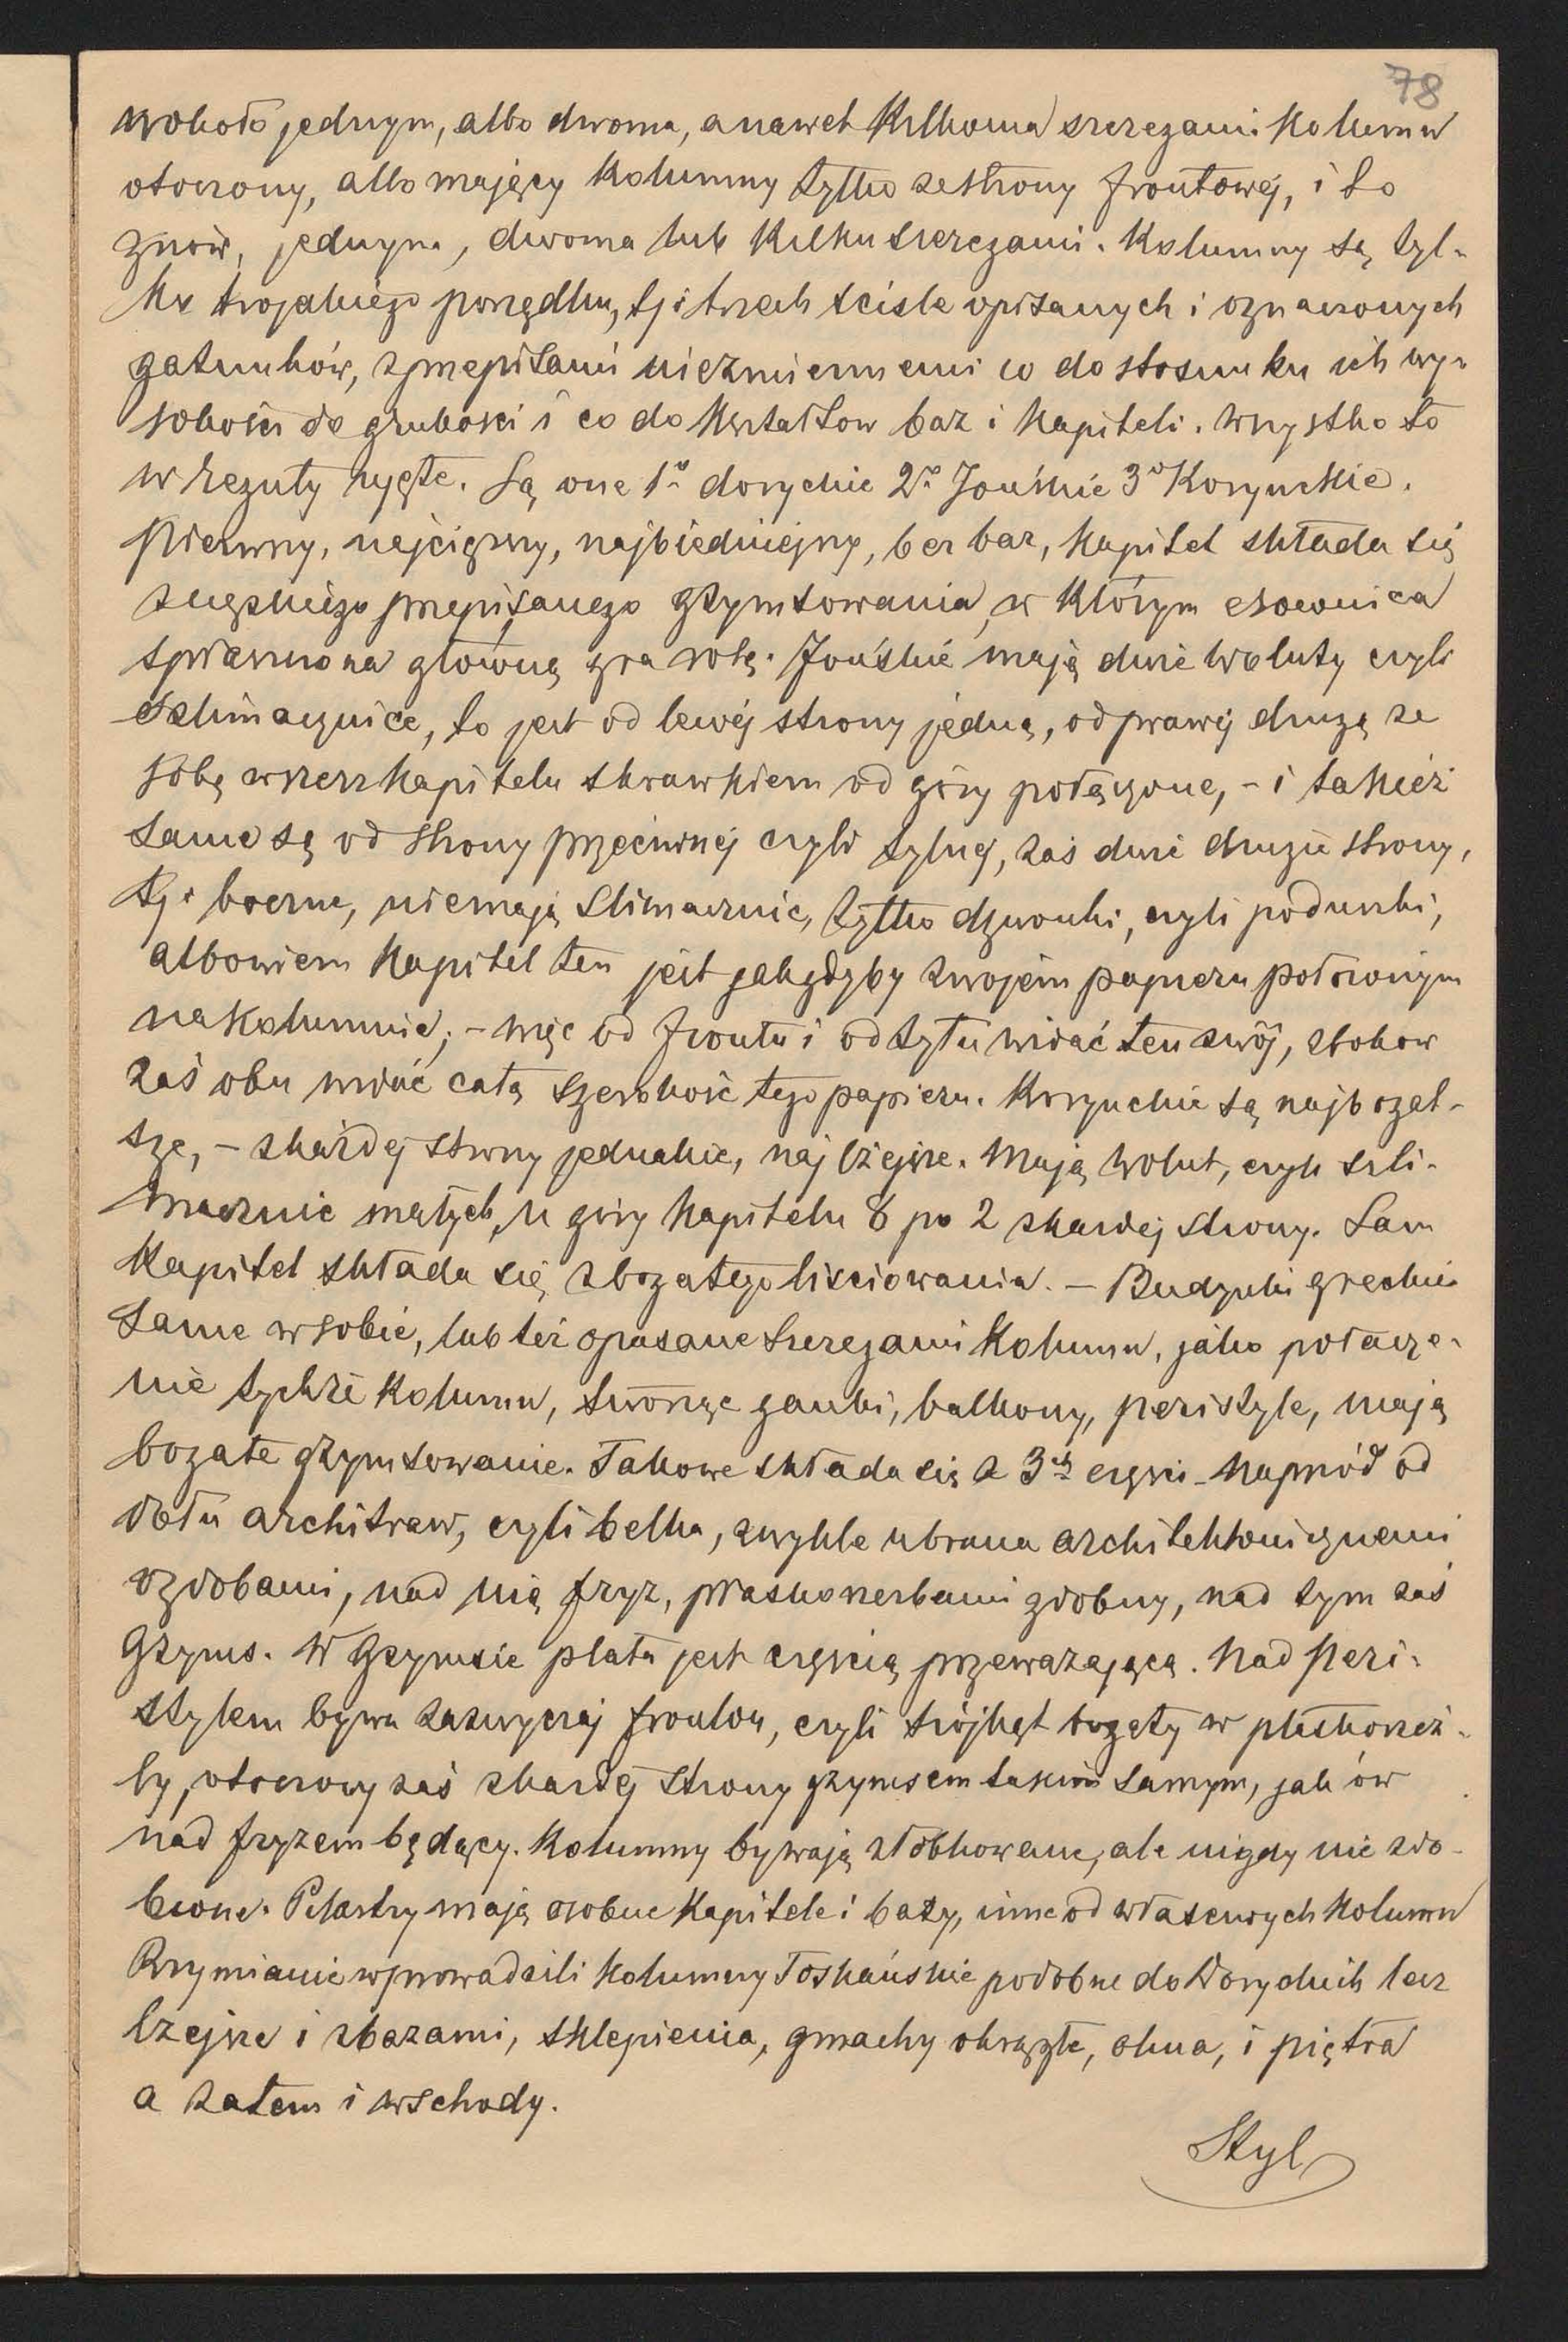 78
wokoło jednym, albo dwoma, a nawet Kilkoma szeregami Kolumn
otoczony, albo mający Kolumny tylko ze strony frontowéj, i to
znów, jednym, dwoma lub Kilku szeregami. Kolumny są tyl-
ko trojakiego porządku, tj: trzech ściśle opisanych i oznaczonych
gatunków, z przepisami niezmiennemi co do stosunku ich wy-
sokości do grubości i co do Kształtow baz i Kapiteli. Wszystko to
w reguły ujęte. Są one 1o doryckie 2o Jońskie 3o Korynckie.
Pierwszy, najcięższy, najbiedniejszy, bez baz, Kapitel składa się
z przepisanego gzymsowania, w Którym esownica
spłaszczona główną gra rolę. Jońskie mają dwie woluty czyli
ślimacznice, to jest od lewéj strony jedną, od prawéj drugą ze
sobą wszerz Kapitelu skrawkiem od góry połączone, - i takież
same są od strony przeciwnéj czyli tylnej, zaś dwie drugie strony,
tj: boczne, nie mają slimacznic, tylko dzwonki, czyli poduszki,
albowiem Kapitel ten jest jakgdyby zwojem papieru położonym
na Kolumnie; - więc od frontu i od tyłu widać ten zwój, z bokow
zaś obu widać całą szerokość tego papieru. Korynckie są najbogat-
sze, - z każdej strony jednakie, najlżejsze. Mają wolut, czyli śli-
macznic małych, u góry Kapitelu 8 po 2 z każdej strony. Sam
Kapitel składa się z bogatego liściowania. - Budynki greckie
same w sobie, lub też opasane szeregami Kolumn, jako połącze-
nie tychże Kolumn, tworząc ganki, balkony, peristyle, mają
bogate gzymsowanie. Takowe składa się z 3ch części - Naprzód od
dołu architraw, czyli belka, zwykle ubrana architektonicznemi
ozdobami, nad nią fryz, płaskorzeźbami zdobny, nad tym zaś
Gzyms. W Gzymsie płata jest częścią przeważającą. Nad Peri-
stylem bywa zazwyczaj fronton, czyli trójkąt bogaty w płaskorzeź-
by, otoczony zaś z każdej strony gzymsem takim samym, jak ów
nad fryzem będący. Kolumny bywają żłobkowane, ale nigdy nie zdo-
bione. Pilastry mają osobne Kapitele i bazy, inne od własciwych Kolumn
Rzymianie wprowadzili Kolumny Toskańskie podobne do Doryckich lecz
lżejsze i z bazami, sklepienia, gmachy okrągłe, okna, i piętra
a zatem i wschody.
Styl